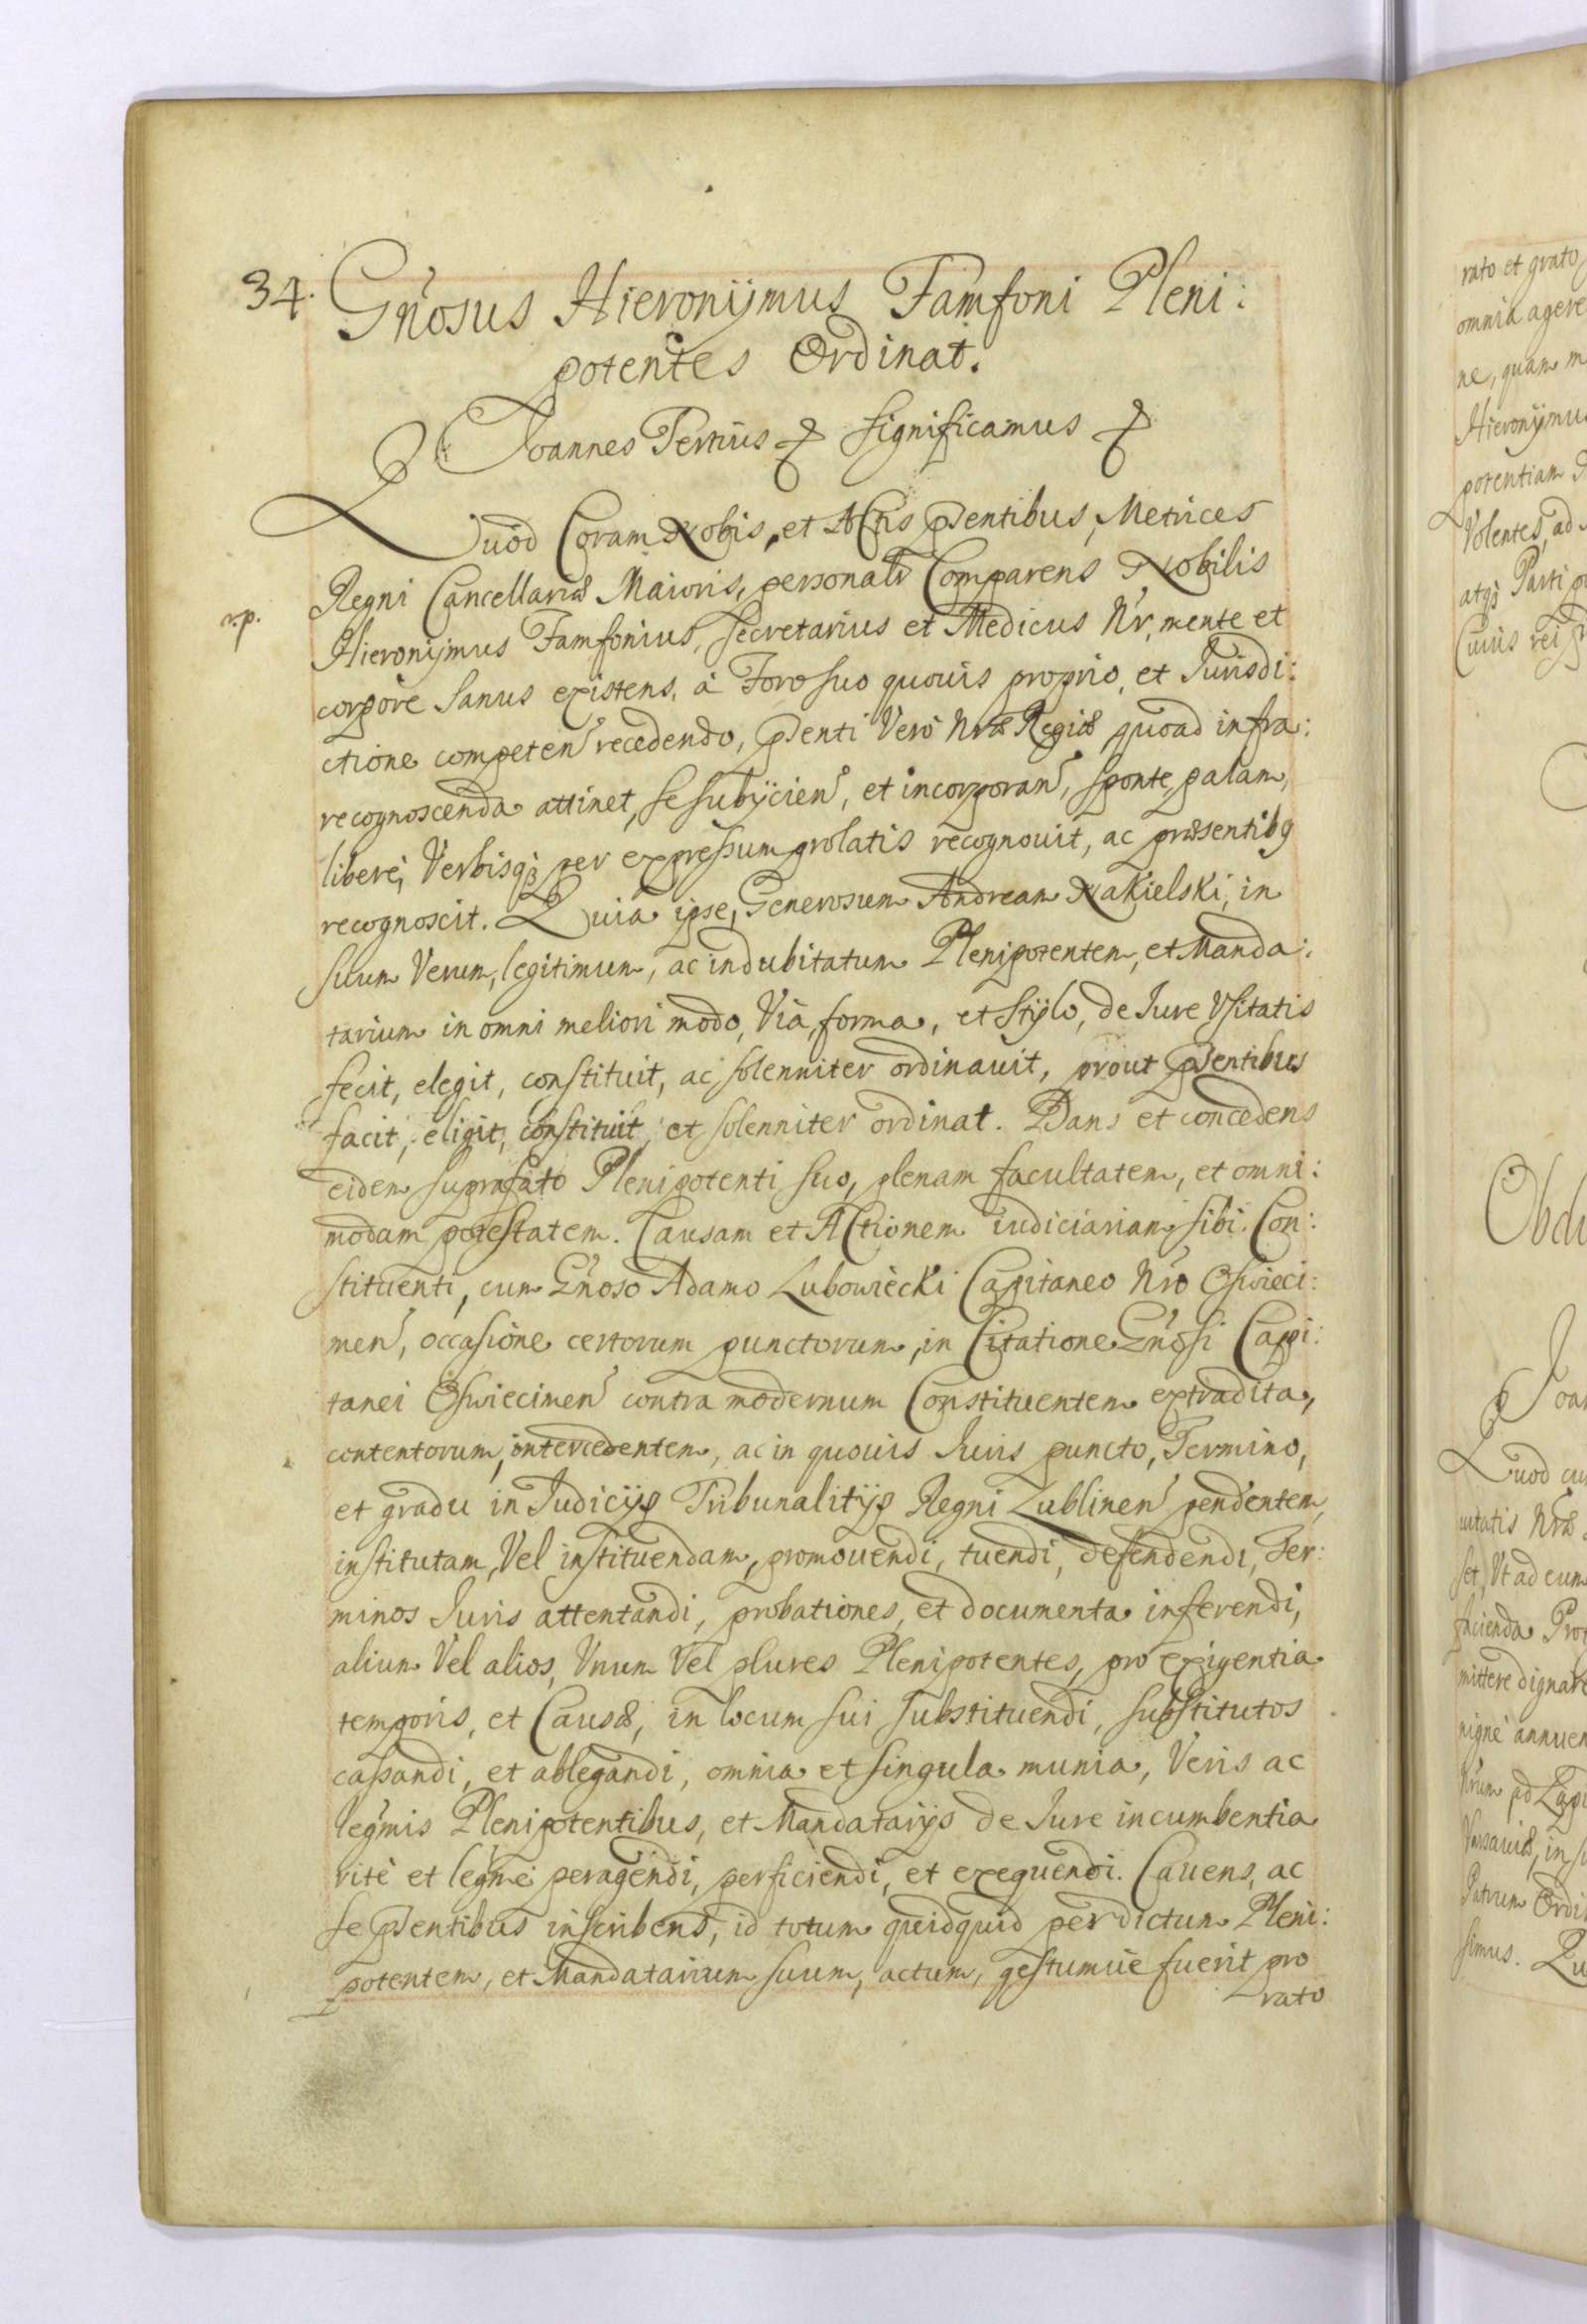 34. Gñosus Hieronÿmus Famfoni Pleni:
potentes Ordinat.
Joannes Tertius significamus
Quod Coram Nobis, et Actis pñtibus, Metrices
Regni Cancellariæ Maioris, personalr Comparens Nobilis
np. Hieronÿmus Famfonius, Secretarius et Medicus Nr̃, mente et
corpore sanus existens, à Foro suo quouis proprio, et Jurisdi:
ctione competeñ recedendo, pñti Verò Nr̃æ Regiæ quoad infra:
recognoscenda attinet, se subÿcieñ, et incorporañ, sponte, palam,
liberè, Verbisq; per expressum prolatis recognouit, ac præsentib9
recognoscit. Quia ipse, Generosum Andream Nakielski, in
suum Verum, legitimum, ac indubitatum Plenipotentem, et Manda:
tarium in omni meliori modo, Via, forma, et Stÿlo, de Jure Vsitatis
fecit, elegit, constituit, ac solenniter ordinauit, prout pñtibus
facit, eligit, constituit, et solenniter ordinat. Dans et concedens
eidem suprafato Plenipotenti suo, plenam facultatem, et omni:
modam potestatem. Causam et Actionem iudiciariam sibi Con:
stituenti, cum Gñoso Adamo Lubowiecki Capitaneo Nr̃o Oswieci:
meñ, occasione certorum punctorum, in Citatione Gñosi Capi:
tanei Oswiecimeñ contra modernum Constituentem extradita,
contentorum, intercedentem, ac in quouis Juris puncto, Termino,
et gradu in Judicÿs Tribunalitÿs Regni Lublineñ pendentem,
institutam, Vel instituendam, promouendi, tuendi, defendendi, Ter:
minos Juris attentandi, probationes, et documenta inferendi,
alium Vel alios, Vnum Vel plures Plenipotentes, pro exigentia
temporis, et Causæ, in locum sui substituendi, substitutos
cassandi, et ablegandi, omnia et singula munia, Veris ac
legm̃is Plenipotentibus, et Mandatarÿs de Jure incumbentia
ritè et legm̃e peragendi, perficiendi, et exequendi. Cauens, ac
se pñtibus inscribens, id totum quidquid per dictum Pleni:
potentem, et Mandatarium suum, actum, gestumue fuerit pro
rato
rato et grato
omnia agere
ne, quam
Hieronÿmus
potentiam
Volentes, ad
atq; Parti
Cuius rei
Quod
uitatis Nr̃æ
set, Vt ad eum
facienda
mittere
nignè annuen
in
Patrum
simus.